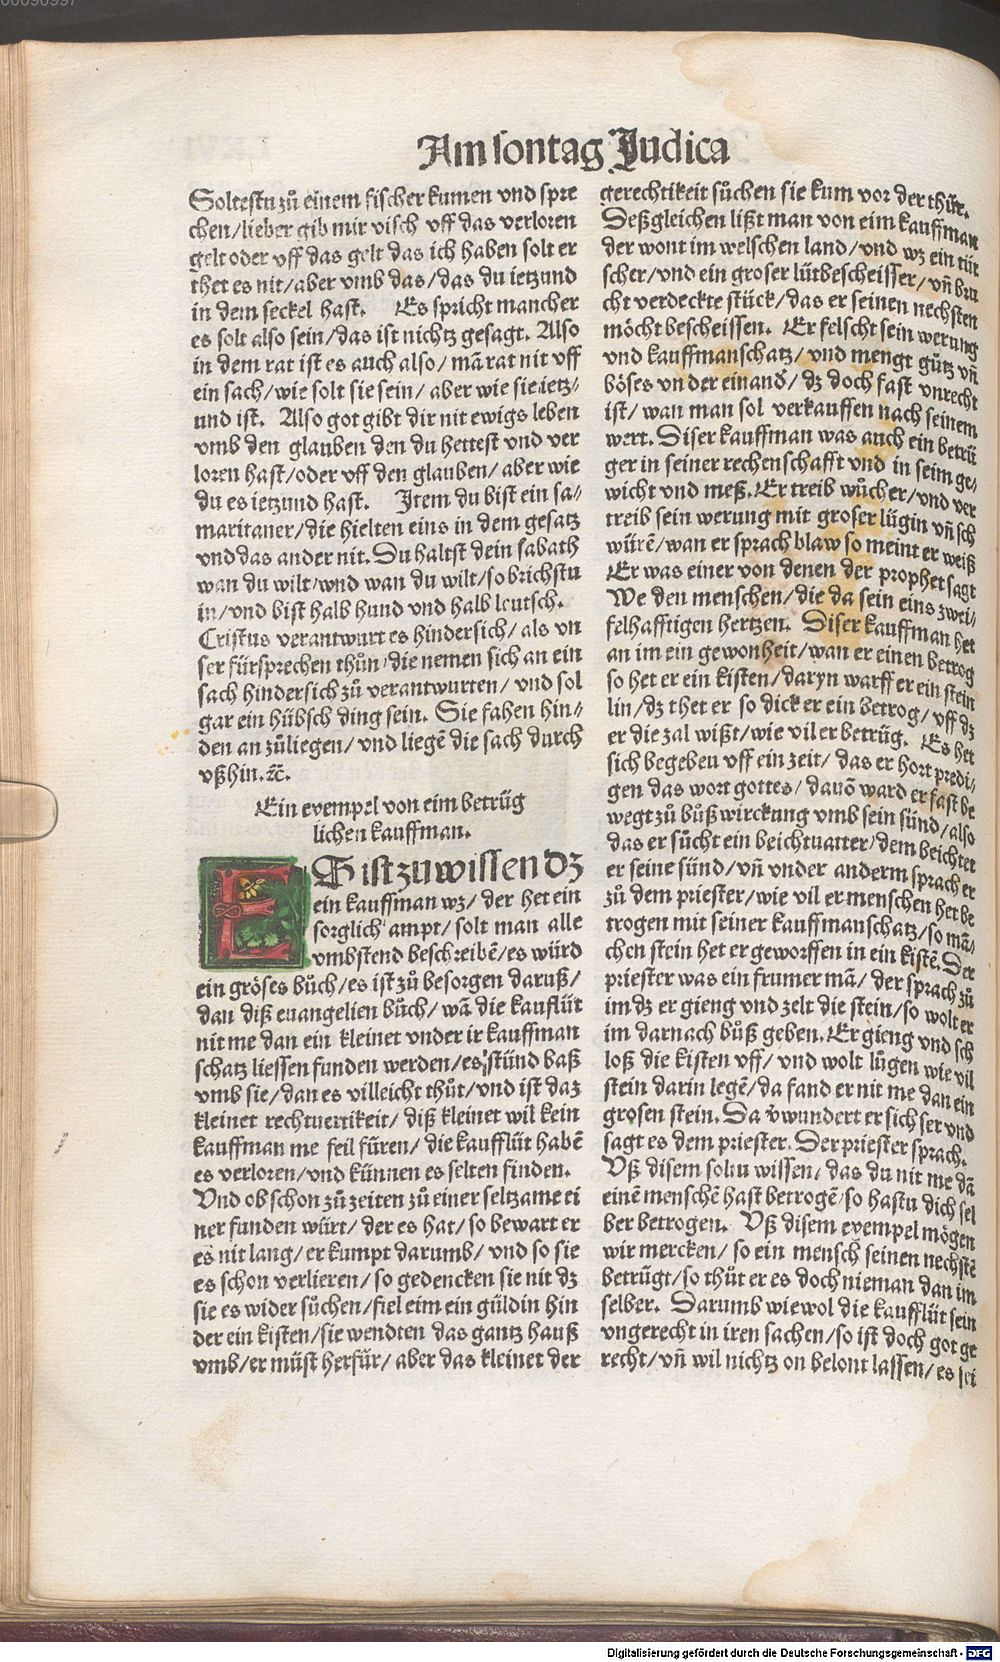 00090997
Am sontag Judica
Soltestu zů einem fischer kumen vnd spre
chen/lieber gib mir visch vff das verloren
gelt oder vff das gelt das ich haben solt er
thet es nit/aber vmb das/das du ietzund
in dem seckel hast. Es spricht mancher
es solt also sein/das ist nichtz gesagt. Also
in dem rat ist es auch also/ mā rat nit vff
ein sach/wie solt sie sein/ aber wie sie ietz/
und ist. Also got gibt dir nit ewigs leben
vmb den glauben den du hettest vnd ver
loren hast/oder vff den glauben/ aber wie
du es ietzund hast. Item du bist ein sa/
maritaner/die hielten eins in dem gesatz
vnd das ander nit. Du haltst dein sabath
wan du wilt/wnd wan du wilt/so brichstu
in/vnd bist halb hund vnd halb leutsch.
Cristus verantwurt es hindersich/ als vn
ser fürsprechen thůn/die nemen sich an ein
sach hindersich zů verantwurten/ vnd sol
gar ein hübsch ding sein. Sie fahen hin/
den an zůliegen/ vnd liegē die sach durch
vßhin. ⁊c̄.
Ein exempel von eim betrüg
lichen kauffman.
ES ist zu wissen dz
ein kauffman wz/ der het ein
sorglich ampt/ solt man alle
vmbstend beschreibē/es würd
ein gröses bůch/es ist zů besorgen daruß/
dan diß euangelien bůch/ wā die kauflüt
nit me dan ein kleinet vnder ir kauffman
schatz liessen funden werden/es stünd baß
vmb sie/dan es villeicht thůt/vnd ist daz
kleinet rechtuertikeit/ diß kleinet wil kein
kauffman me feil füren/ die kaufflüt habē
es verloren/vnd künnen es selten finden.
Vnd ob schon zů zeiten zů einer seltzame ei
ner funden würt/ der es hat/ so bewart er
es nit lang/ er kumpt darumb/ vnd so sie
es schon verlieren/ so gedencken sie nit dz
sie es wider sůchen/fiel eim ein güldin hin
der ein kisten/sie wendten das gantz hauß
vmb/er müst herfür/ aber das kleinet der
gerechtikeit sůchen sie kum vor der thür.
Deßgleichen lißt man von eim kauffman
der wont im welschen land/vnd wz ein tüt
scher/vnd ein groser lütbescheisser/ vñ bru
cht verdeckte stück/das er seinen nechsten
möcht bescheissen. Er felscht sein werung
vnd kauffmanschatz/ vnd mengt gůtz vñ
böses vn der einand/ dz doch fast vnrecht
ist/ wan man sol verkauffen nach seinem
wert. Diser kauffman was auch ein betrü
ger in seiner rechenschafft vnd in seim ge/
wicht vnd meß. Er treib wůcher/vnd ver
treib sein werung mit groser lügin vñ sch
würē/wan er sprach blaw so meint er weiß
Er was einer von denen der prophet sagt
We den menschen/die da sein eins zwei/
felhafftigen hertzen. Diser kauffman het
an im ein gewonheit/wan er einen betrog
so het er ein kisten/daryn warff er ein stein
lin/dz thet er so dick er ein betrog/ vff dz
er die zal wißt/wie vil er betrüg. Es het
sich begeben vff ein zeit/ das er hort predi/
gen das wort gottes/ dauō ward er fast be
wegt zů bůßwirckung vmb sein sünd/also
das er sůcht ein beichtuatter/dem beichtet
er seine sünd/vñ vnder anderm sprach er
zů dem priester/wie vil er menschen het be
trogen mit seiner kauffmanschatz/so mā/
chen stein het er geworffen in ein kistē. Der
priester was ein frumer mā/ der sprach zů
im dz er gieng vnd zelt die stein/so wolt er
im darnach bůß geben. Er gieng vnd sch
loß die kisten vff/ vnd wolt lůgen wie vil
stein darin legē/da fand er nit me dan ein
grosen stein. Da v̄wundert er sich ser vnd
sagt es dem priester. Der priester sprach.
Vß disem soltu wissen/ das du nit me dā
einē menschē hast betrogē/so hastu dich sel
ber betrogen. Vß disem exempel mögen
wir mercken/ so ein mensch seinen nechstē
betrügt/so thůt er es doch nieman dan im
selber. Darumb wiewol die kaufflüt sein
vngerecht in iren sachen/so ist doch got ge
recht/vñ wil nichtz on belont lassen/es sei
Digitalisierung gefördert durch die Deutsche Forschungsgemeinschaft - DFG